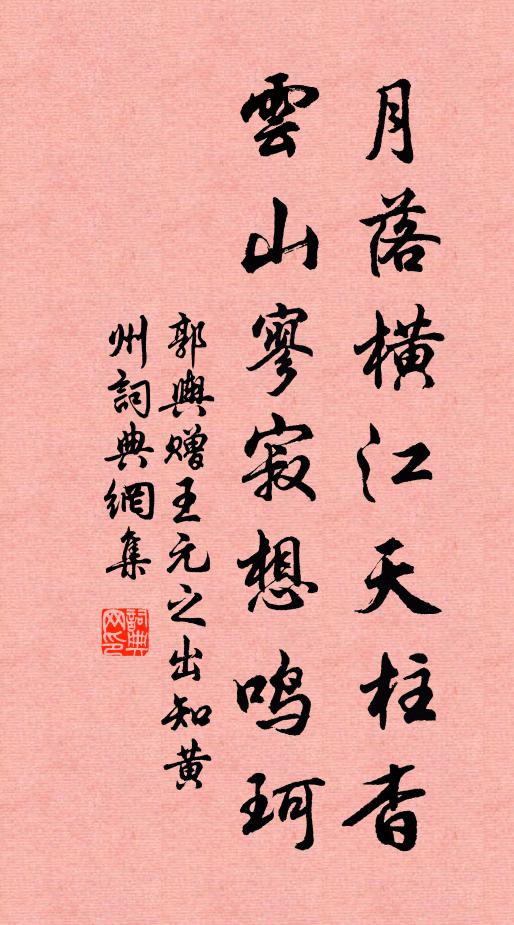 月落橫江天柱杳
雲山寥寂想鸣珂
郭輿赠王元之出知黄
州詞典網集
詞典网印